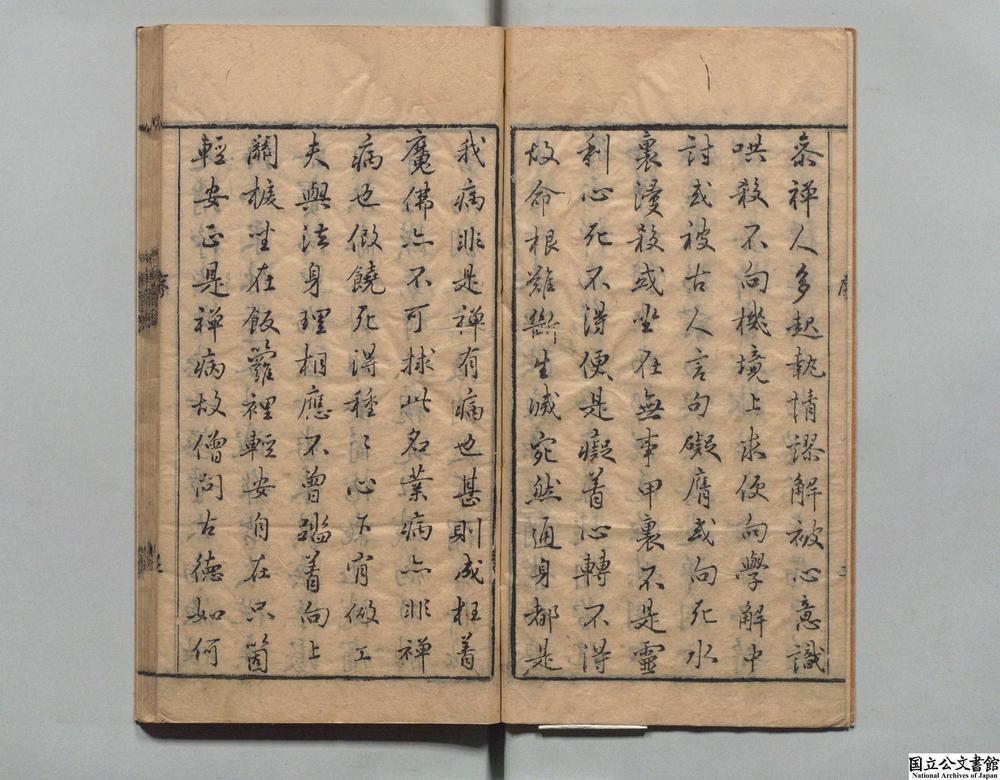 叅禪人多起執情謬解被心意識
哄殺不向機境上求便向學解中
討或被古人言句礙膺或向死水
裏浸殺或坐在無事甲裏不是靈
利心死不得便是癡著心轉不得
故命根難斷生滅宛然通身都是
我病非是禪有病也甚則成枉著
魔佛亦不可捄此名業病亦非禪
病也假饒死得種〻心下肯做工
夫與法身理相應不曾踏着向上
關棙坐在飯籮裡輕安自在只箇
輕安正是禪病故僧問古德如何
序
國立公文書館
National Archives of Japan